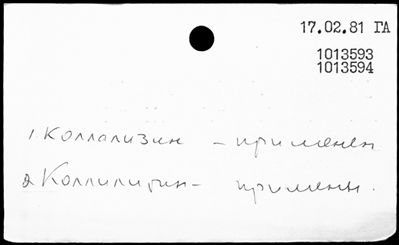 17.02.81 ГА
1013593
1013594
1. Коллализин - применен.
2. Коллитин - применен.